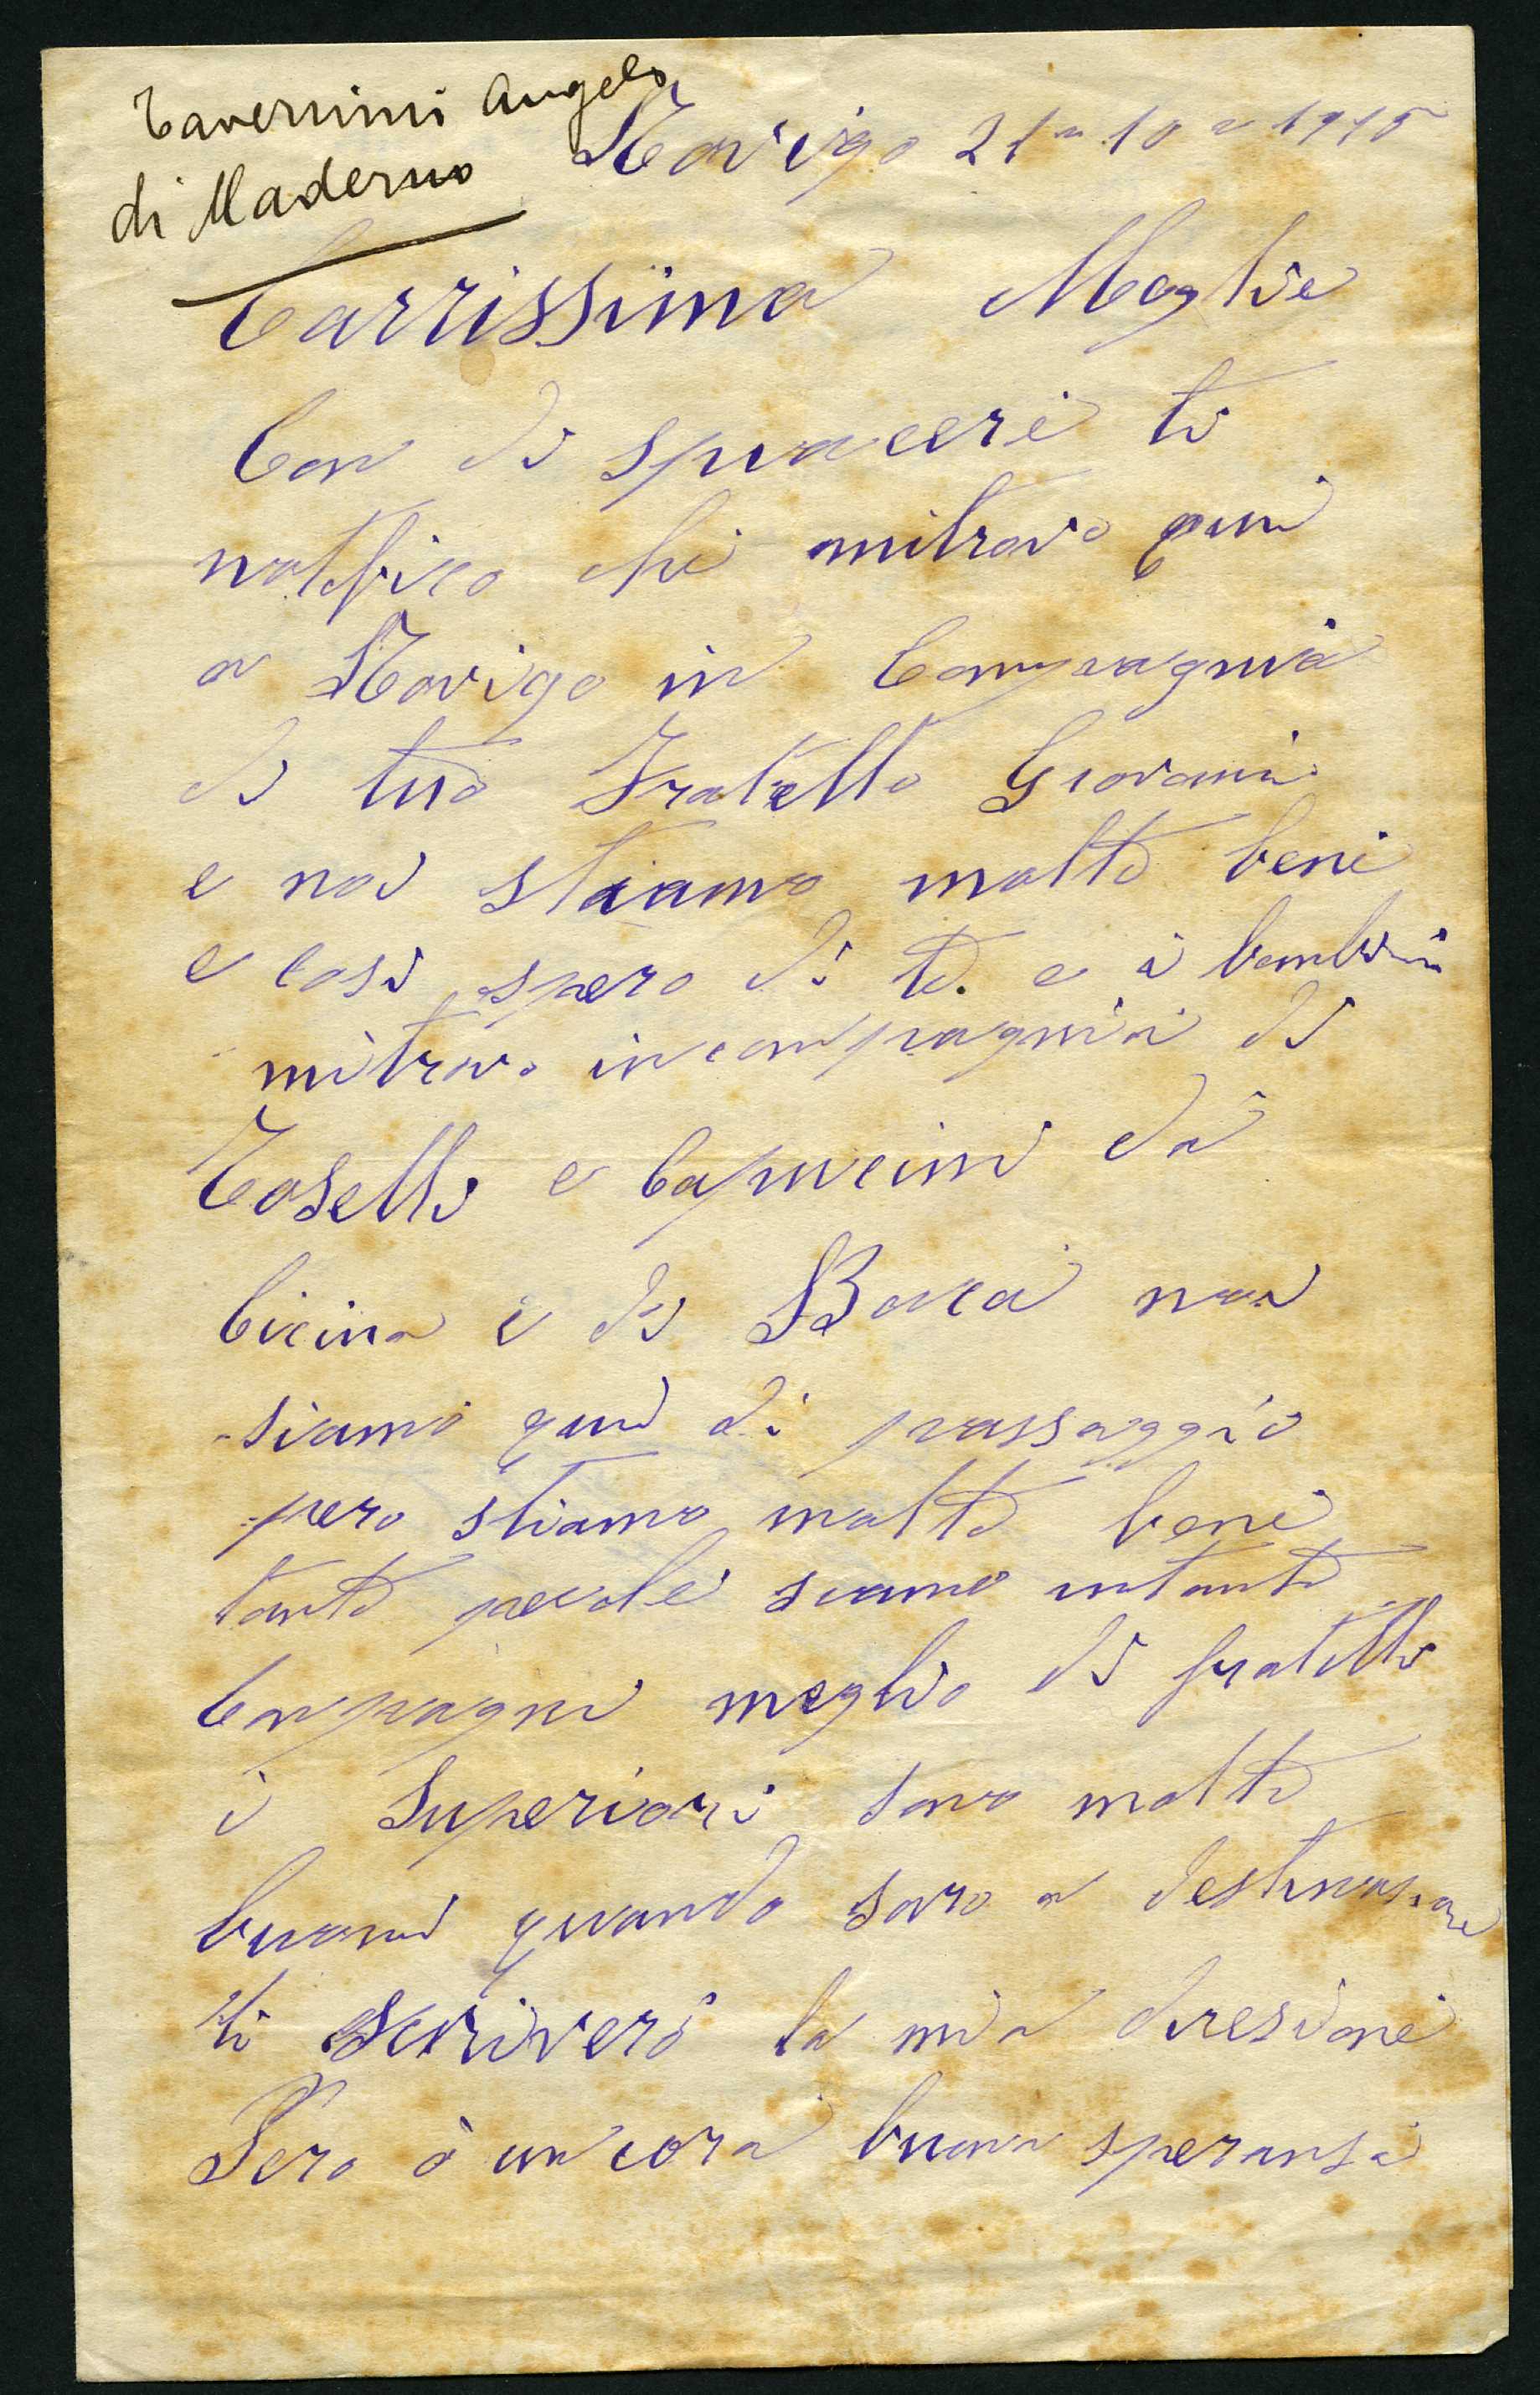 Tavernini Angelo
di Maderno
Rovigo 21 = 10 = 1915
Carrissima Moglie
Con di spiaceri ti
notifico chi mitrovo qui
a Rovigo in Compagnia
di tuo Fratello Giovani
e noi stiamo molto beni
e cosi spero di te. e i bambini
mitrovo incompagnia di
Toselli e Capuccini da
Cicina e di Baca noi
siamo qui di passaggio
pero stiamo molto beni
tanto perché siamo intanti
Conpagni meglio di fratelli
i Superiori sono molto
buoni quando saro a destinasione
ti scriverò la mia diresione
Pero ò uncora buona speransa